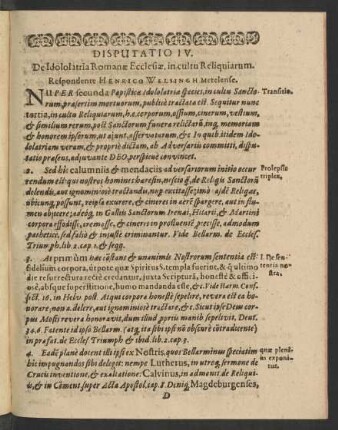 DISPUTATIO IV.
De Idololatria Romanæ Ecclesiæ, in cultu Reliquiarum.
Respondente HENRICO WELSINGH Mitelense.
NUPER secunda Papisticæ idololatriæ species, in cultu Sancto-
rum, præsertim mortuorum, publicè tractata est. Sequitur nunc
tertia, in cultu Reliquiarum, h. e. corporum, ossium, cinerum, vestium,
& similium rerum, post Sanctorum funera relictarū, in eorum memoriam
& honorem institutus, ut ajunt,
latriam verum, & propriè dictam, ab Adversariis committi, dispu-
tatio præsens, adjuvante DEO, perspicuè convincet.
Transitio.
2. Sed hic calumniis & mendaciis adversariorum initio occur-
rendum est: qui nostros homines hæresin, nescio quā, de Religiis Sanctorū
delendis, aut ignominiosè tractandis,
ubicunq, possunt, & cineres in aërē spargere, aut in flu-
men abjicere: adeoq, in Galliis Sanctorum Irenæi, Hilarii, & Martini
corpora effodisse, & cineres in profluentē projecisse, admodum
falsò, & injustè criminantur. Vide Bellarm. de Eccles.
Triumph. lib. 2. cap. 1. & seqq.
Prolepsis
triplex,
3. At primùm hæc constans & unanimis Nostrorum sententia est:
fidelium corpora, utpote quæ Spiritus S. templa fuerint, & q́ ultimo
die resurrectura rectè credantur, juxta Scripturā, honestè & officiosè,
absque superstitione, humo mandanda esse, &c. Vide Harm. Conf.
sect. 16. in Helv. post. Atqui corpora honestè sepelire, revera est ea ho-
norare, non a. delere, aut ignominiosè tractare, &c. Sicut ipse Deus cor-
pus Mosis revera honoravit, dum illud propriis manib. sepelivit. Deut.
34. 6. Fatente id ipso Bellarm. (atq, ita sibi ipsi nō obscurè cōtradicente)
in præfat. de Eccles. Triumph. & ibid. lib. 2. cap. 3.
1. De sen-
tentia no-
stra,
4. Eadē planè docent illi ipsi ex Nostris, quos Bellarminus speciatim
hic impugnandos sibi delegit: nempe Lutherus, in utroq, sermone de
Crucis inventione, & exaltatione: Calvinus, in admonit. de Reliqui-
is, & in Cōment. super Acta Apostol. cap. 8. Deniq, Magdeburgenses,
quæ plenè
iis exponi-
tur.
D